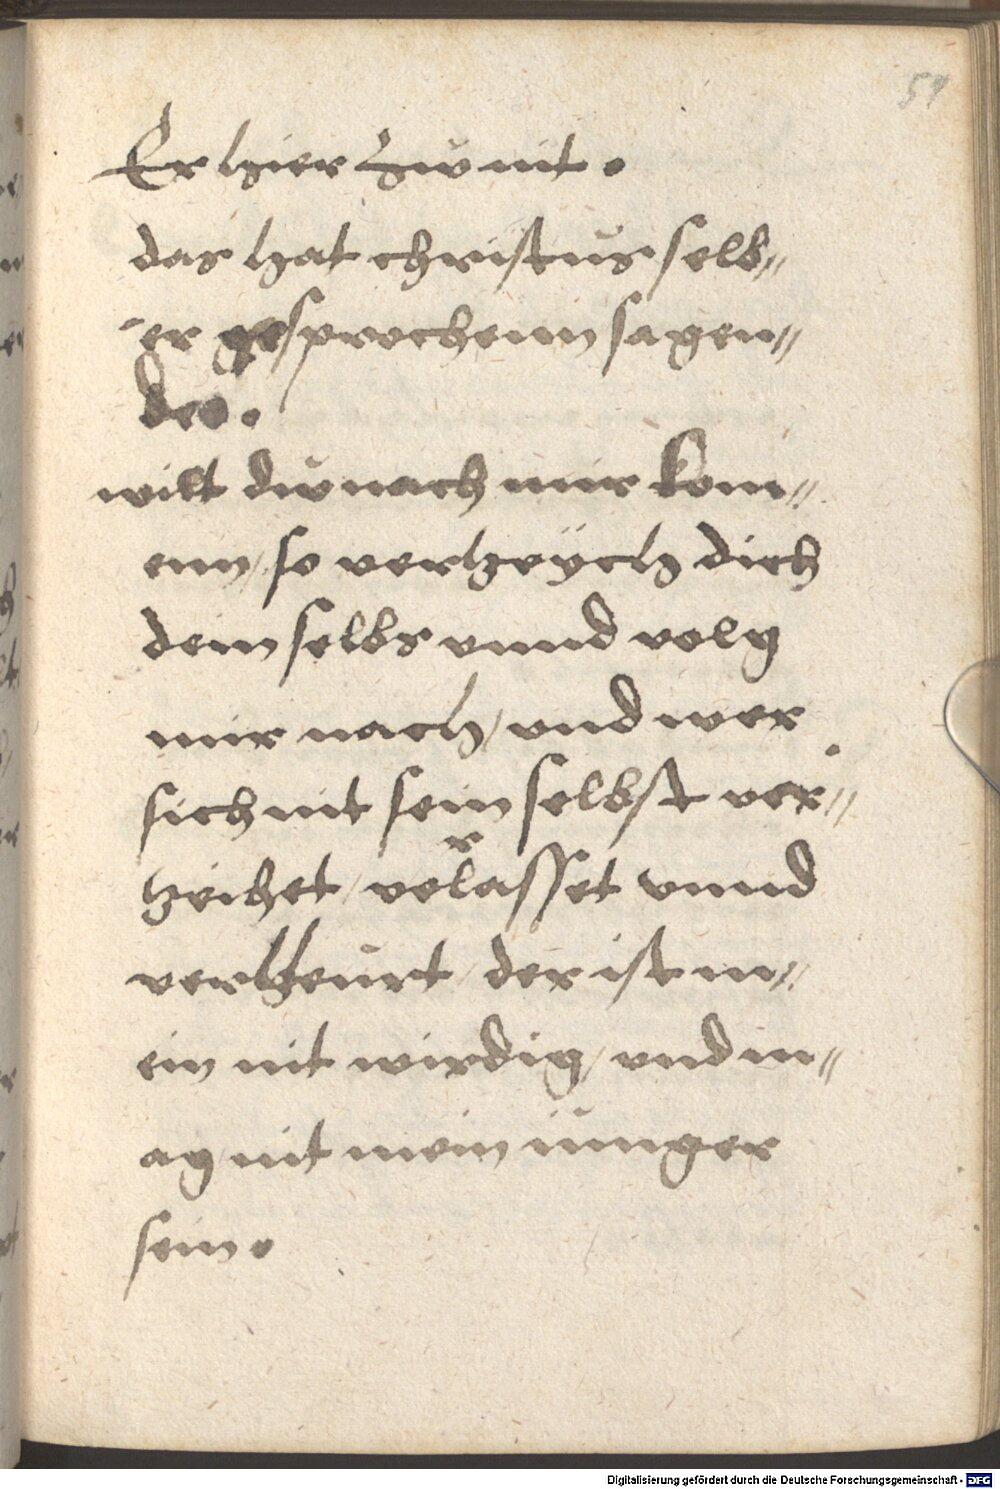 51
Er hier zu nit.
das hat christus selb„
er gesprochenn sagen„
des.
wilt du nach mir kom„
enn, so verzeych dich
dein selbs vnnd volg
mir nach, vnd wer
sich nit sein selbst ver„
zeihet, verlasset vnnd
verleurt, der ist m„
ein nit wirdig, vnd m„
ag nit mein iunger
sein.
Digitalisierung gefördert durch die Deutsche Forschungsgemeinschaft - DFG